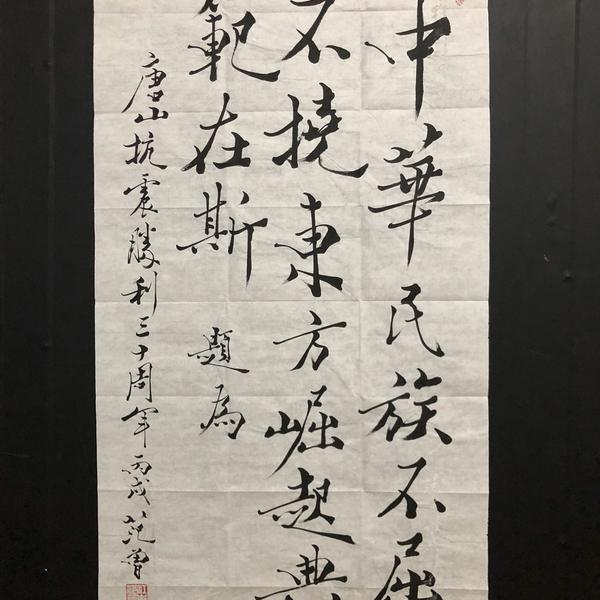 中華民族不屈
不撓東方崛起典
範在斯 題為
唐山抗震勝利三十周年 丙戌 范曾